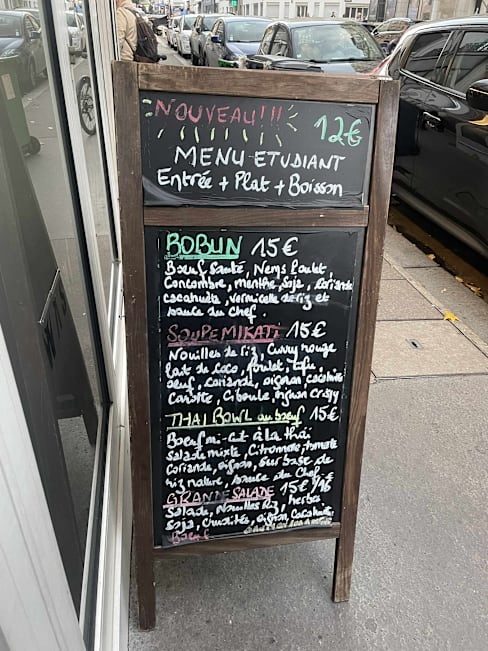 NOUVEAU!!!
12€
MENU ETUDIANT
Entrée + Plat + Boisson
BOBUN 15€
Bœuf Sauté, Nems Poulet,
Concombre, menthe, Soja, Coriande
cacahuète, vermicelle de riz et
sauce du Chef.
SOUPE MIKATI 15€
Nouilles de riz, Curry rouge
lait de coco, poulet, tofu,
oeuf, coriande, oignon cacahuètes
Carotte, Ciboule, oignon crispy
THAI BOWL au bœuf 15€
Bœuf mi-cuit à la thaï
Salade mixte, Citronnelle, tomate
Coriande, oignon, sur base de
riz nature, sauce du Chef
GRANDE SALADE 15€
Salade, Nouilles Riz, herbes
Soja, Crudités, oignon, Cacahuètes
Bœuf